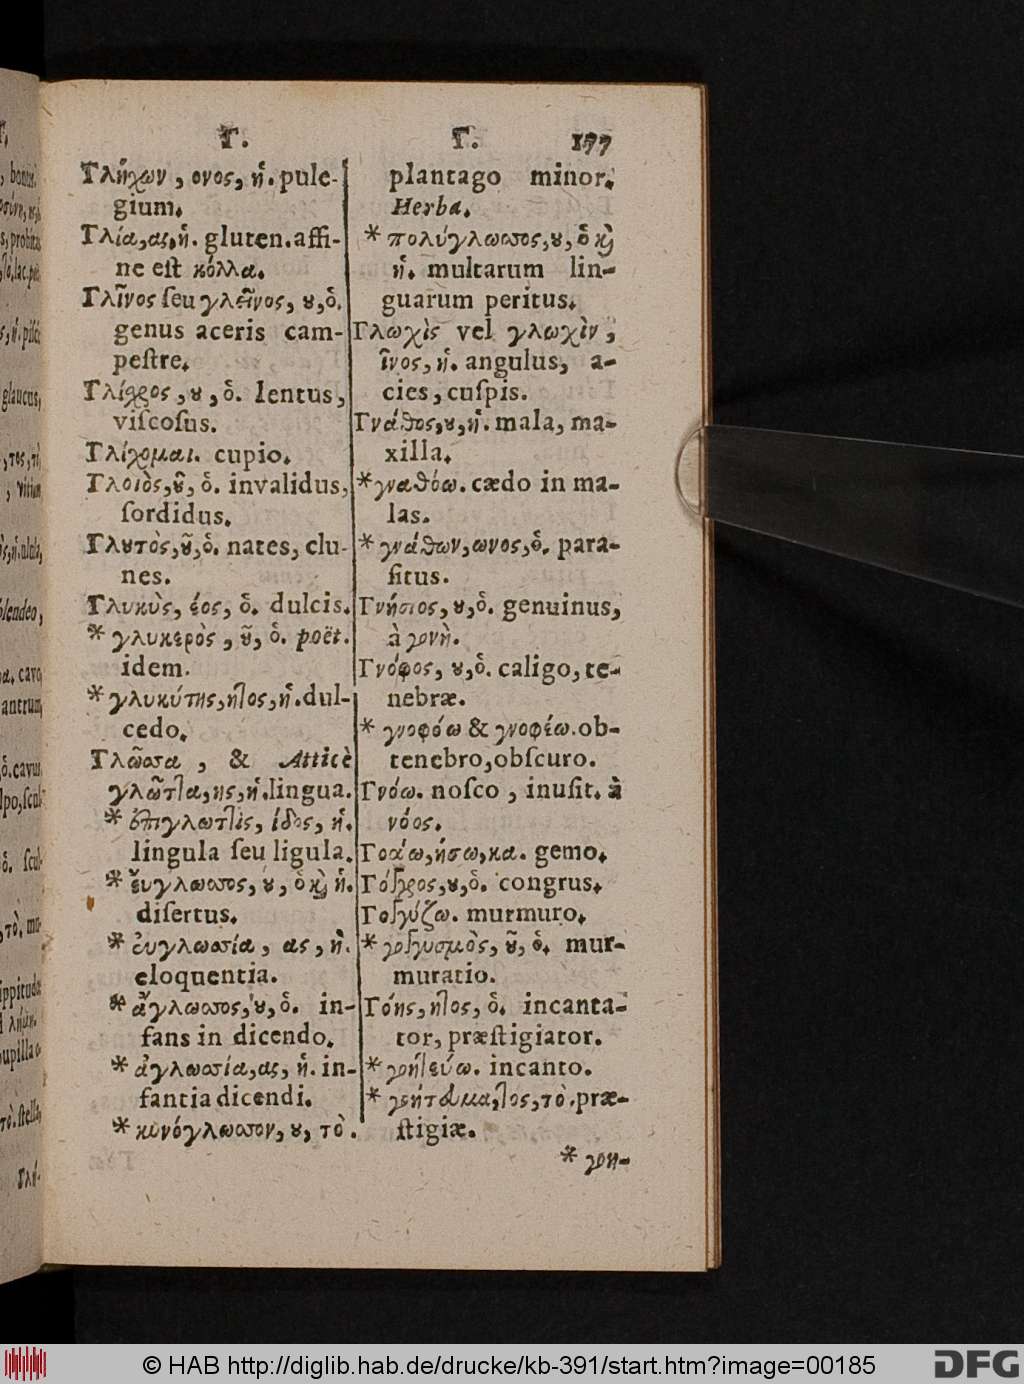 Γ. Γ. 177
Γλήχων, ονος, ἡ. pule-
gium.
Γλία, ας, ἡ. gluten. affi-
ne est κόλλα.
Γλῖνος ſeu γλεῖνος, ου, ὁ.
genus aceris cam-
peſtre.
Γλίχρος, ου, ὁ. lentus,
viſcoſus.
Γλίχομαι. cupio.
Γλοιὸς, οῦ, ὁ. invalidus,
ſordidus.
Γλουτὸς, οῦ, ὁ. nates, clu-
nes.
Γλυκὺς, έος, ὁ. dulcis.
* γλυκερὸς, οῦ, ὁ. poët.
idem.
* γλυκύτης, ητος, ἡ. dul-
cedo.
Γλῶσσα, & Atticè
γλῶττα, ης, ἡ. lingua.
* ἐπιγλωττὶς, ίδος, ἡ.
lingula ſeu ligula.
* εὔγλωσσος, ου, ὁ καὶ ἡ.
diſertus.
* εὐγλωσσία, ας, ἡ.
eloquentia.
* ἄγλωσσος, ου, ὁ. in-
fans in dicendo.
* ἀγλωσσία, ας, ἡ. in-
fantia dicendi.
* κυνόγλωσσον, ου, τὸ.
plantago minor.
Herba.
* πολύγλωσσος, ου, ὁ καὶ
ἡ. multarum lin-
guarum peritus.
Γλωχὶς vel γλωχὶν,
ῖνος, ἡ. angulus, a-
cies, cuſpis.
Γνάθος, ου, ἡ. mala, ma-
xilla.
* γναθόω. cædo in ma-
las.
* γνάθων, ωνος, ὁ. para-
ſitus.
Γνήσιος, ου, ὁ. genuinus,
à γονὴ.
Γνόφος, ου, ὁ. caligo, te-
nebræ.
* γνοφόω & γνοφέω. ob-
tenebro, obſcuro.
Γνόω. noſco, inuſit. à
νόος.
Γοάω, ήσω, κα. gemo.
Γόγγρος, ου, ὁ. congrus.
Γογγύζω. murmuro.
* γογγυσμὸς, οῦ, ὁ. mur-
muratio.
Γόης, ητος, ὁ. incanta-
tor, præſtigiator.
* γοητεύω. incanto.
* γοήτευμα, τος, τὸ. præ-
ſtigiæ.
* γοη-
© HAB http://diglib.hab.de/drucke/kb-391/start.htm?image=00185
DFG